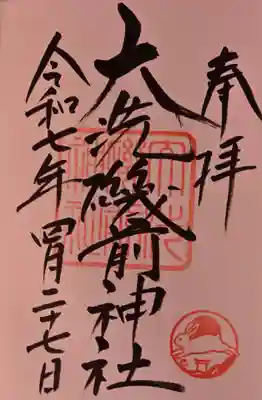 奉拝
大洗磯前神社
令和七年四月二十七日